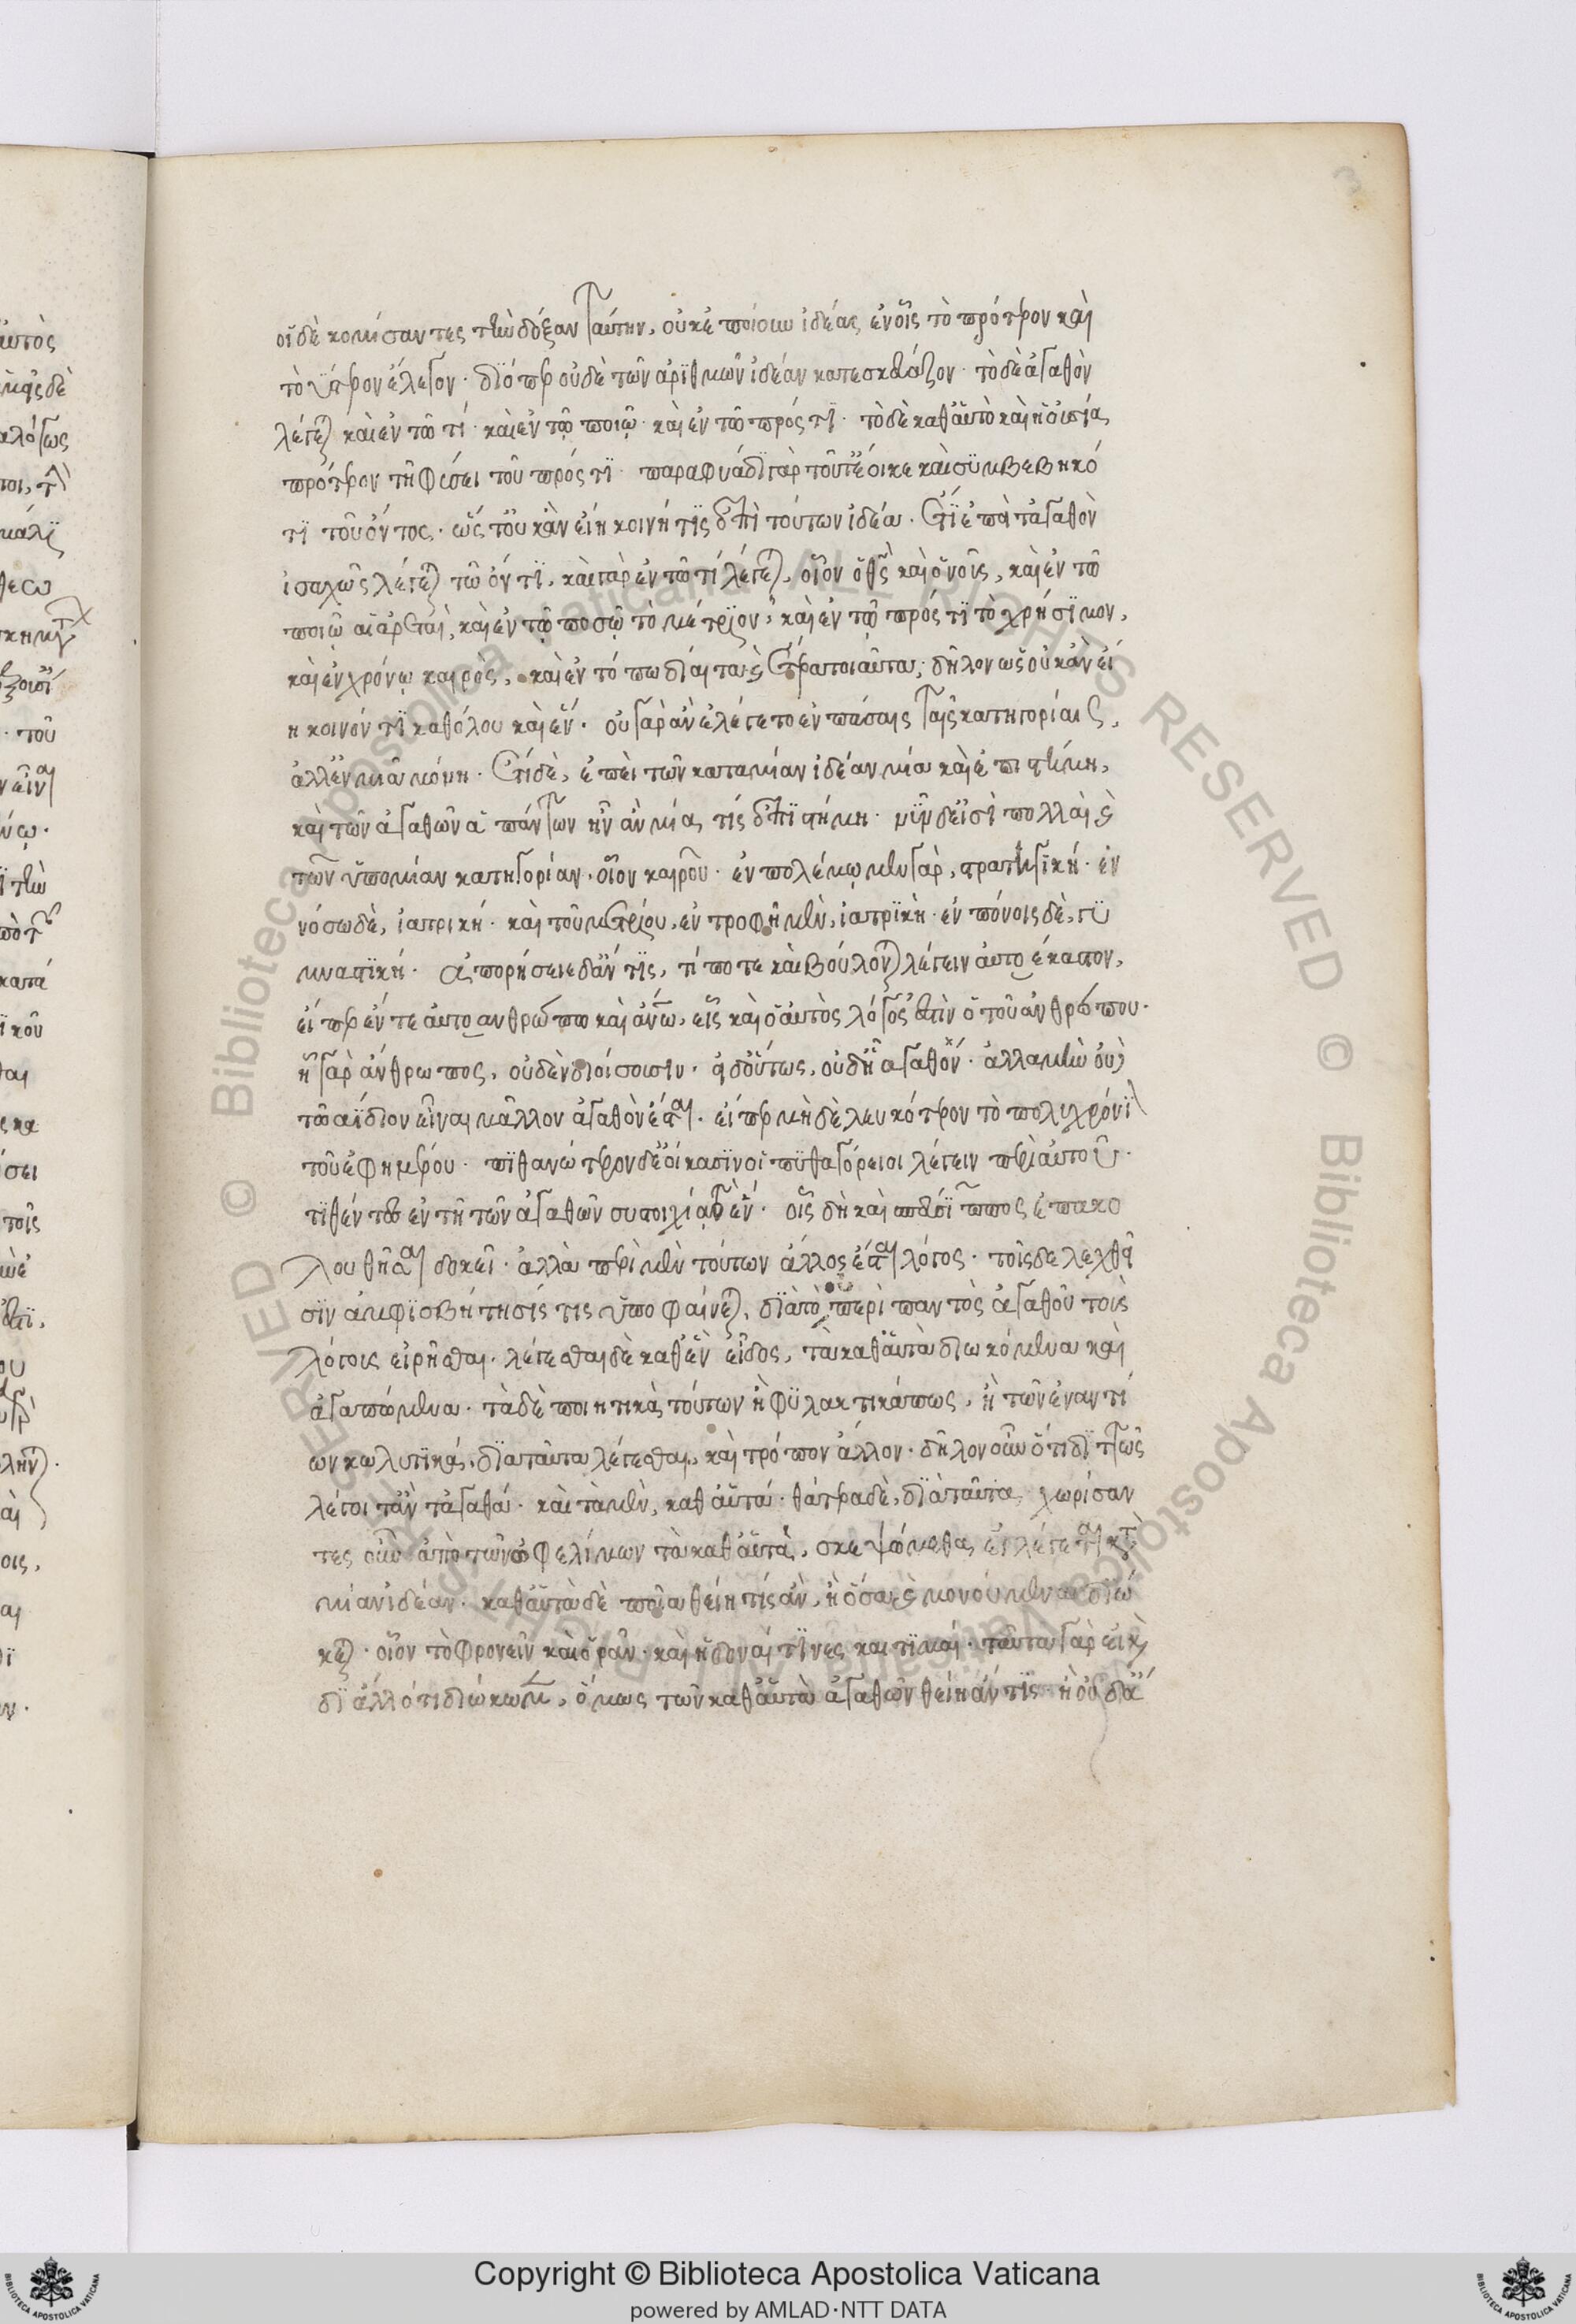 οἱ δὲ κομίσαντες τὴν δόξαν ταύτην, οὐκ ἐποίουν ἰδέας ἐν οἷς τὸ πρότερον καὶ
τὸ ὕστερον ἔλεγον· διόπερ οὐδὲ τῶν ἀριθμῶν ἰδέαν κατεσκεύαζον· τὸ δὲ ἀγαθὸν
λέγεται καὶ ἐν τῶ τί· καὶ ἐν τῷ ποιῷ· καὶ ἐν τῶ πρός τι· τὸ δὲ καθ' αὑτὸ καὶ ἡ οὐσία,
πρότερον τῆ φύσει τοῦ πρός τι· παραφυάδι γὰρ τοῦτ' ἔοικε καὶ συμβεβηκό
τι τοῦ ὄντος· ὥστ' οὐκ ἂν εἴη κοινή τις ἐπὶ τούτων ἰδέα. ἔτι ἐπεὶ τἀγαθὸν
ἰσαχῶς λέγεται τῶ ὄντι, καὶ γὰρ ἐν τῶ τί λέγεται, οἷον ὁ θεὸς καὶ ὁ νοῦς, καὶ ἐν τῶ
ποιῶ αἱ ἀρεταὶ, καὶ ἐν τῷ ποσῷ τὸ μέτριον, καὶ ἐν τῷ πρός τι τὸ χρήσιμον,
καὶ ἐν χρόνῳ καιρὸς, καὶ ἐν τόπω δίαιτα καὶ ἕτερα τοιαῦτα, δῆλον ὡς οὐκ ἂν εἴ
η κοινόν τι καθόλου καὶ ἕν. οὐ γὰρ ἂν ἐλέγετο ἐν πάσαις ταῖς κατηγορίαις,
ἀλλ' ἐν μιᾶ μόνη. ἔτι δὲ, ἐπεὶ τῶν κατὰ μίαν ἰδέαν μία καὶ ἐπιστήμη,
καὶ τῶν ἀγαθῶν ἁπάντων ἦν ἂν μία τίς ἐπιστήμη· νῦν δ' εἰσὶ πολλαὶ καὶ
τῶν ὑπὸ μίαν κατηγορίαν, οἷον καιροῦ· ἐν πολέμῳ μὲν γὰρ, στρατηγική· ἐν
νόσω δὲ, ἰατρική· καὶ τοῦ μετρίου, ἐν τροφῆ μὲν, ἰατρικὴ· ἐν πόνοις δὲ, γυ
μναστική. ἀπορήσειε δ' ἄν τις, τί ποτε καὶ βούλονται λέγειν αὐτοέκαστον,
εἴπερ ἔν τε αὐτοανθρώπω καὶ ἀνθρώπω, εἷς καὶ ὁ αὐτὸς λόγος ἐστὶν ὁ τοῦ ἀνθρώπου.
ᾗ γὰρ ἄνθρωπος, οὐδὲν διοίσουσιν. εἰ δ' οὕτως, οὐδ' ᾗ ἀγαθὸν. ἀλλὰ μὴν οὐδὲ
τῶ ἀΐδιον εἶναι μᾶλλον ἀγαθὸν ἔσται. εἴπερ μὴδὲ λευκότερον τὸ πολυχρόνι
τοῦ ἐφημέρου. πιθανώτερον δ' ἐοίκασιν οἱ πυθαγόρειοι λέγειν περὶ αὐτοῦ.
τιθέντες ἐν τῆ τῶν ἀγαθῶν συστοιχίᾳ τὸ ἕν. οἷς δὴ καὶ σπεύσιππος ἐπακο
λουθῆσαι δοκεῖ. ἀλλὰ περὶ μὲν τούτων ἄλλος ἔσται λόγος. τοῖς δὲ λεχθεῖ
σιν ἀμφισβήτησίς τις ὑποφαίνεται, διὰ τὸ οὐ περὶ παντὸς ἀγαθοῦ τοὺς
λόγους εἰρῆσθαι. λέγεσθαι δὲ καθ' ἓν εἶδος, τὰ καθ' αὑτὰ διωκόμενα καὶ
ἀγαπώμενα. τὰ δὲ ποιητικὰ τούτων ἢ φυλακτικά πως, ἢ τῶν ἐναντί
ων κωλυτικά, διὰ ταῦτα λέγεσθαι, καὶ τρόπον ἄλλον. δῆλον οὖν ὅτι διττῶς
λέγοιτ' ἂν τἀγαθά. καὶ τὰ μὲν, καθ' αὑτά. θάτερα δὲ, διὰ ταῦτα, χωρίσαν
τες οὖν ἀπὸ τῶν ὠφελίμων τὰ καθ' αὑτὰ, σκεψώμεθα, εἰ λέγεται κατὰ
μίαν ἰδέαν. καθ' αὑτὰ δὲ ποῖα θείη τίς ἂν, ἢ ὅσα καὶ μονούμενα διώ
κεται. οἷον τὸ φρονεῖν καὶ ὁρᾶν. καὶ ἡδοναί τινες καὶ τιμαί. ταῦτα γὰρ εἰ καὶ
δι' ἄλλό τι διώκομεν, ὅμως τῶν καθ' αὑτὰ ἀγαθῶν θείη ἄν τις ἢ οὐδ' ἄ
Copyright © Biblioteca Apostolica Vaticana
powered by AMLAD·NTT DATA